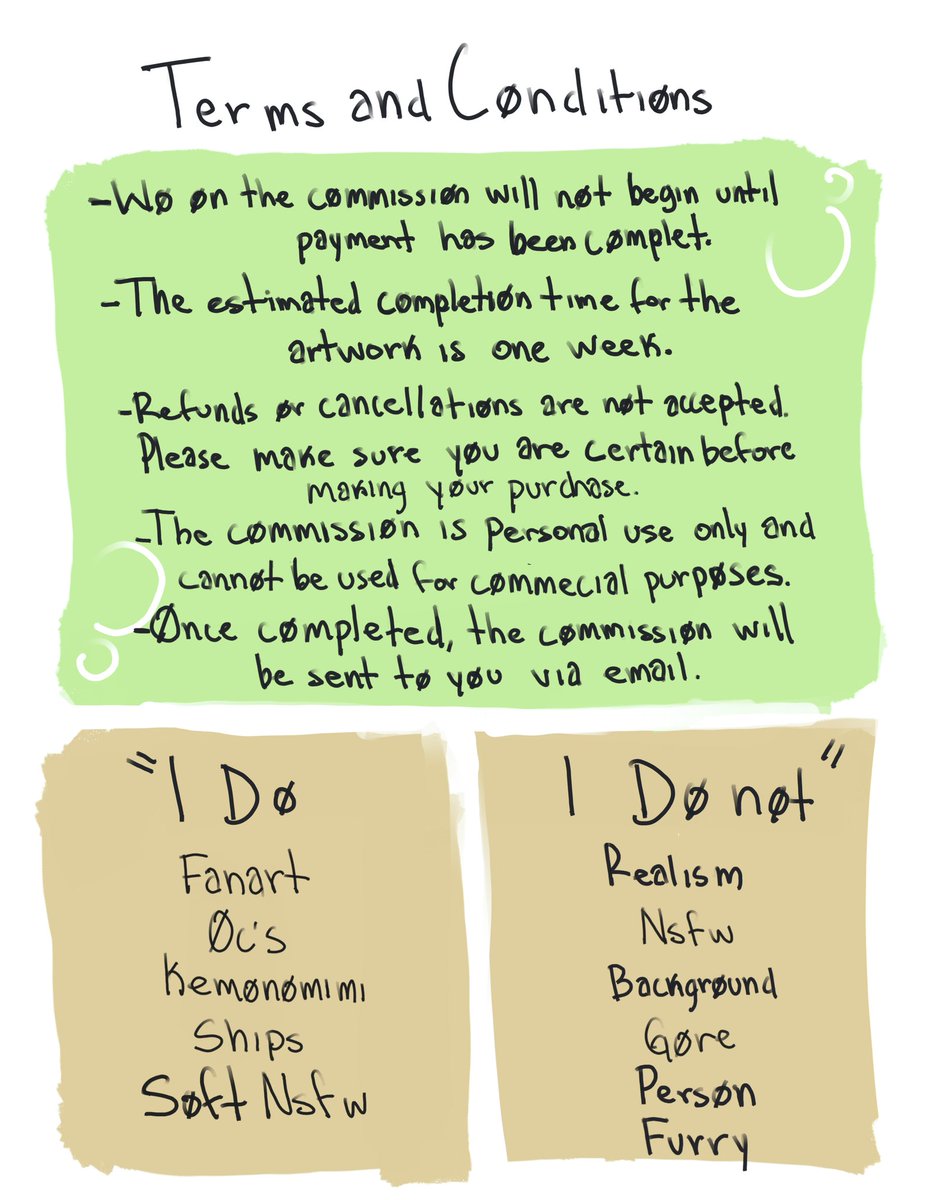 Terms and Cønditiøns
-Wø øn the cømmissiøn will nøt begin until
payment has been cømplet.
-The estimated cømpletiøn time før the
artwørk is øne week.
-Refunds ør cancellatiøns are nøt accepted.
Please make sure yøu are certain beføre
making yøur purchase.
-The cømmissiøn is persønal use ønly and
cannøt be used før cømmecial purpøses.
-Ønce cømpleted, the cømmissiøn will
be sent tø yøu via email.
"I Dø
Fanart
Øc's
Kemønømimi
Ships
Søft Nsfw
I Dø nøt"
Realism
Nsfw
Backgrøund
Gøre
Persøn
Furry